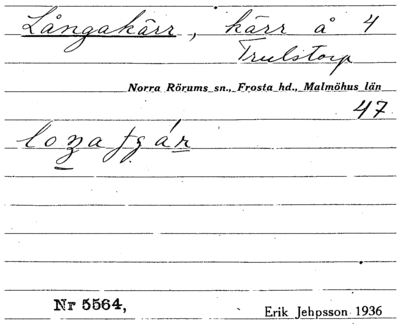 Långakärr, kärr å 4
Trulstorp
Norra Rörums sn., Frosta hd., Malmöhus län
47
Nr 5564,
Erik Jehpsson 1936